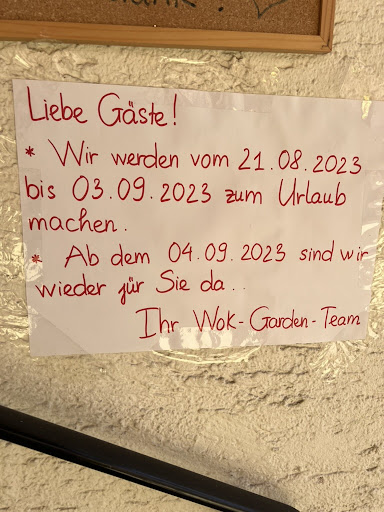 Liebe Gäste!
* Wir werden vom 21.08.2023
bis 03.09.2023 zum Urlaub
machen.
* Ab dem 04.09.2023 sind wir
wieder für Sie da..
Ihr Wok-Garden-Team